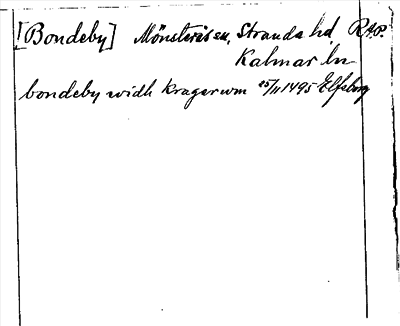 [Bondeby] Mönsterås sn, Stranda hd R.A.P.
Kalmar ln
bondeby widh Kragerwm 25/11 1495 Elfsborg